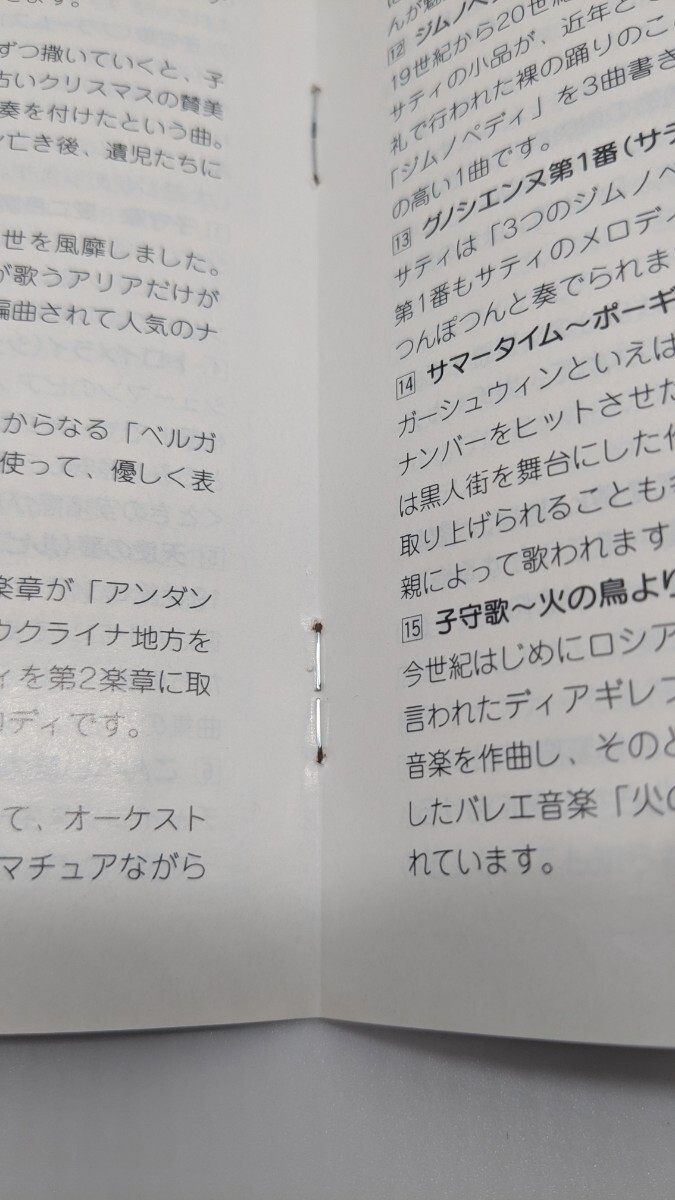 ずつ撒いていくと、子
古いクリスマスの賛美
奏を付けたという曲。
亡き後、遺児たちに
世を風靡しました。
が歌うアリアだけが
編曲されて人気のナ
からなる「ベルガ
使って、優しく表
楽章が「アンダン
ウクライナ地方を
ィを第2楽章に取
ロディです。
て、オーケスト
マチュアながら
12 ジムノペデ
19世紀から20世紀
サティの小品が、近年と
礼で行われた裸の踊りのこ
「ジムノペディ」を3曲書き
の高い1曲です。
13 グノシエンヌ第1番(サテ
サティは「3つのジムノペ
第1番もサティのメロデ
つんぽつんと奏でられま
14 サマータイム～ポーギ
ガーシュウィンといえは
ナンバーをヒットさせた
は黒人街を舞台にした
取り上げられることも
親によって歌われます
15 子守歌～火の鳥より
今世紀はじめにロシア
言われたディアギレフ
音楽を作曲し、そのと
したバレエ音楽「火の
れています。